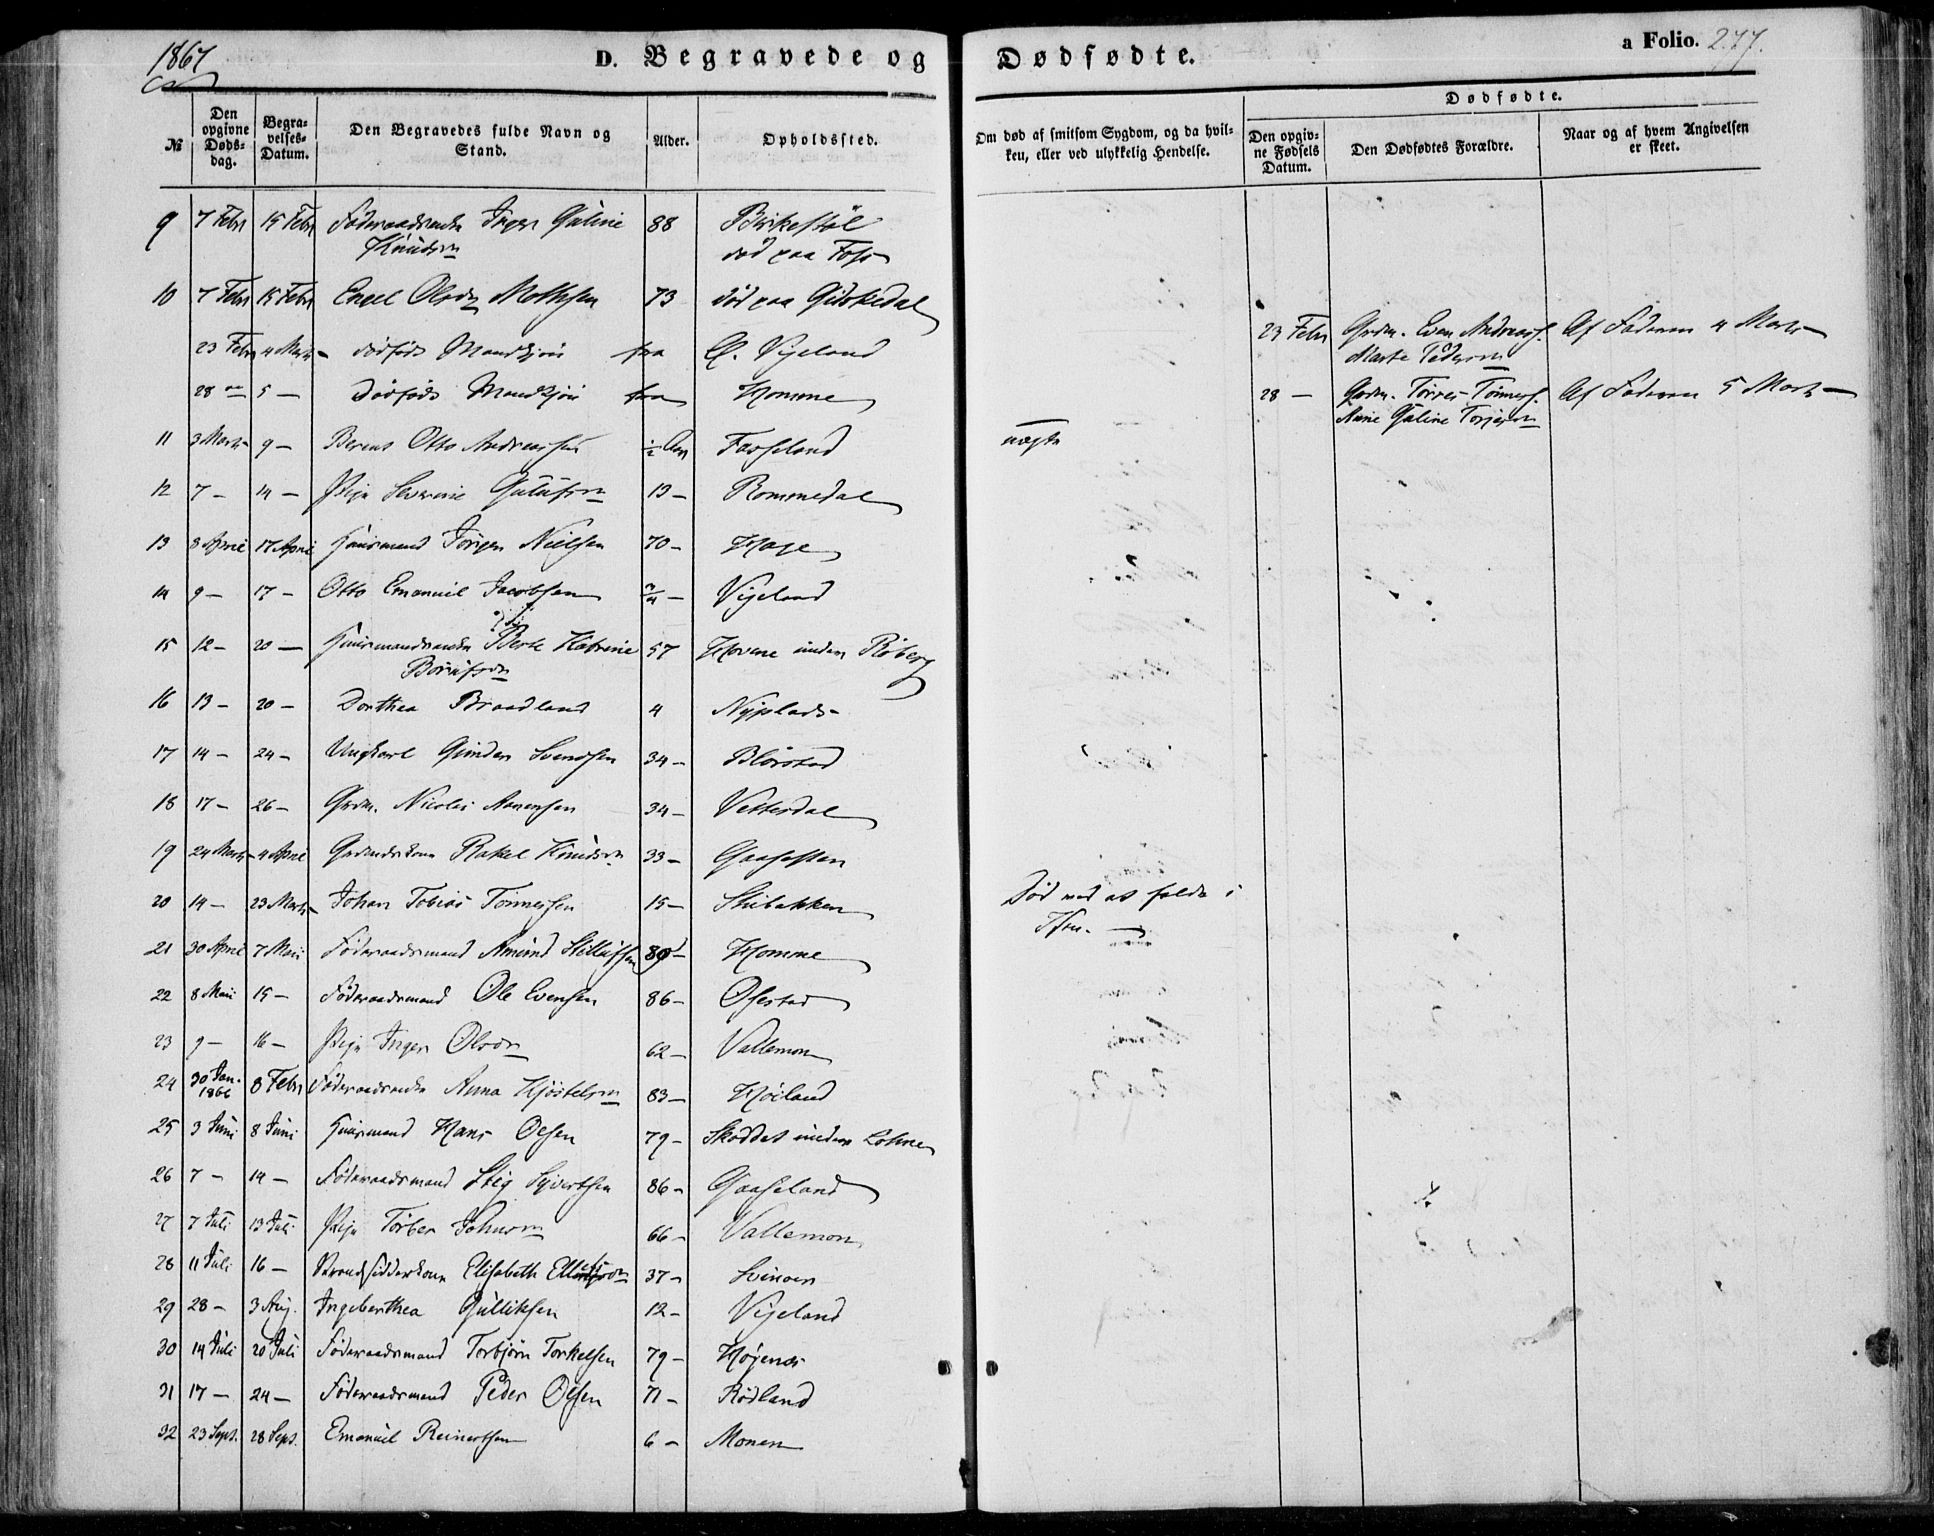 1867
D. Begravede og Dødfødte.
a Folio. 277.
№
Den opgivne Døds-dag.
Begra-velses-Datum.
Den Begravedes fulde Navn og Stand.
Alder.
Opholdssted.
Om død af smitsom Sygdom, og da hvil-ken, eller ved ulykkelig Hendelse.
Dødfødte.
Den opgiv-ne Fødsels Datum.
Den Dødfødtes Forældre.
Naar og af hvem Angivelsen er skeet.
9 7 Febr 15 Febr Føderaadsenke Inger Guline 88 Birkestøl
Knudsdn død paa Foss
10 7 Febr 15 Febr Engel Olsdn 73 død paa Gidskedal
23 Febr 4 Marts dødfødt Mandkjøn fra Ø. Vigeland 23 Febr Grdm. Even Andreass. Af Faderen 4 Marts
Marte Pedersdn
28 — 5 — Dødfødt Mandkjøn fra Homme 28 — Grdm. Tørres Tønness. Af Faderen 5 Marts
Anne Guline Torjesdn
11 3 Marts 9 — Berent Otto Andreassen ½ Aar Fasseland uægte
12 7 — 14 — Pige Severine 13 — Rommedal
13 8 April 17 April Huusmand Jørgen Nielsen 70 — Hage
14 9 — 17 — Otto Emanuel Jacobsen ¾ — Vigeland
15 12 — 20 — Huusmandsenke Berte Katrine 57 Hovene under Røberg
16 13 — 20 — Dorthea Braadland 4 Nyplads
17 14 — 24 — Ungkarl Gunder Svendsen 34 — Blørstad
18 17 — 26 — Grdm. Nicolai Aanensen 34 — Vettesdal
19 24 Marts 4 April Grdmdskone Rakel Knudsdn 33 — Gaasesten
20 14 — 23 Marts Johan Tobias Tønnessen 15 — Skibakken Død ved at falde i
21 30 April 7 Mai Føderaadsmand Amund 89 — Homme
22 8 Mai 15 — Føderaadsmand Ole Evensen 86 — Øfstad
23 9 — 16 — Pige Inger Olsdn 62 — Vallemon
24 30 Jan. 1866 8 Febr Føderaadsenke Anna Kjøstelsdn 83 — Høiland
25 3 Juni 8 Juni Huusmand Hans Olsen 79 — Skoddet under Lohne
26 7 — 14 — Føderaadsmand Stig Syvertsen 86 — Gaaseland
27 7 Juli 13 Juli Pige Tørber Johnsdn 66 — Vallemon
28 11 Juli 16 — Strandsidderkone Elisabeth 37 — Svinøer
29 28 — 3 Aug. Ingeberthea Gulliksen 12 — Vigeland
30 14 Juli 20 Juli Føderaadsmand Torbjørn Torkelsen 79 — Høgenæs
31 17 — 24 — Føderaadsmand Peder Olsen 71 — Rødland
32 23 Sept. 28 Sept. Emanuel Reinertsen 6 — Monen